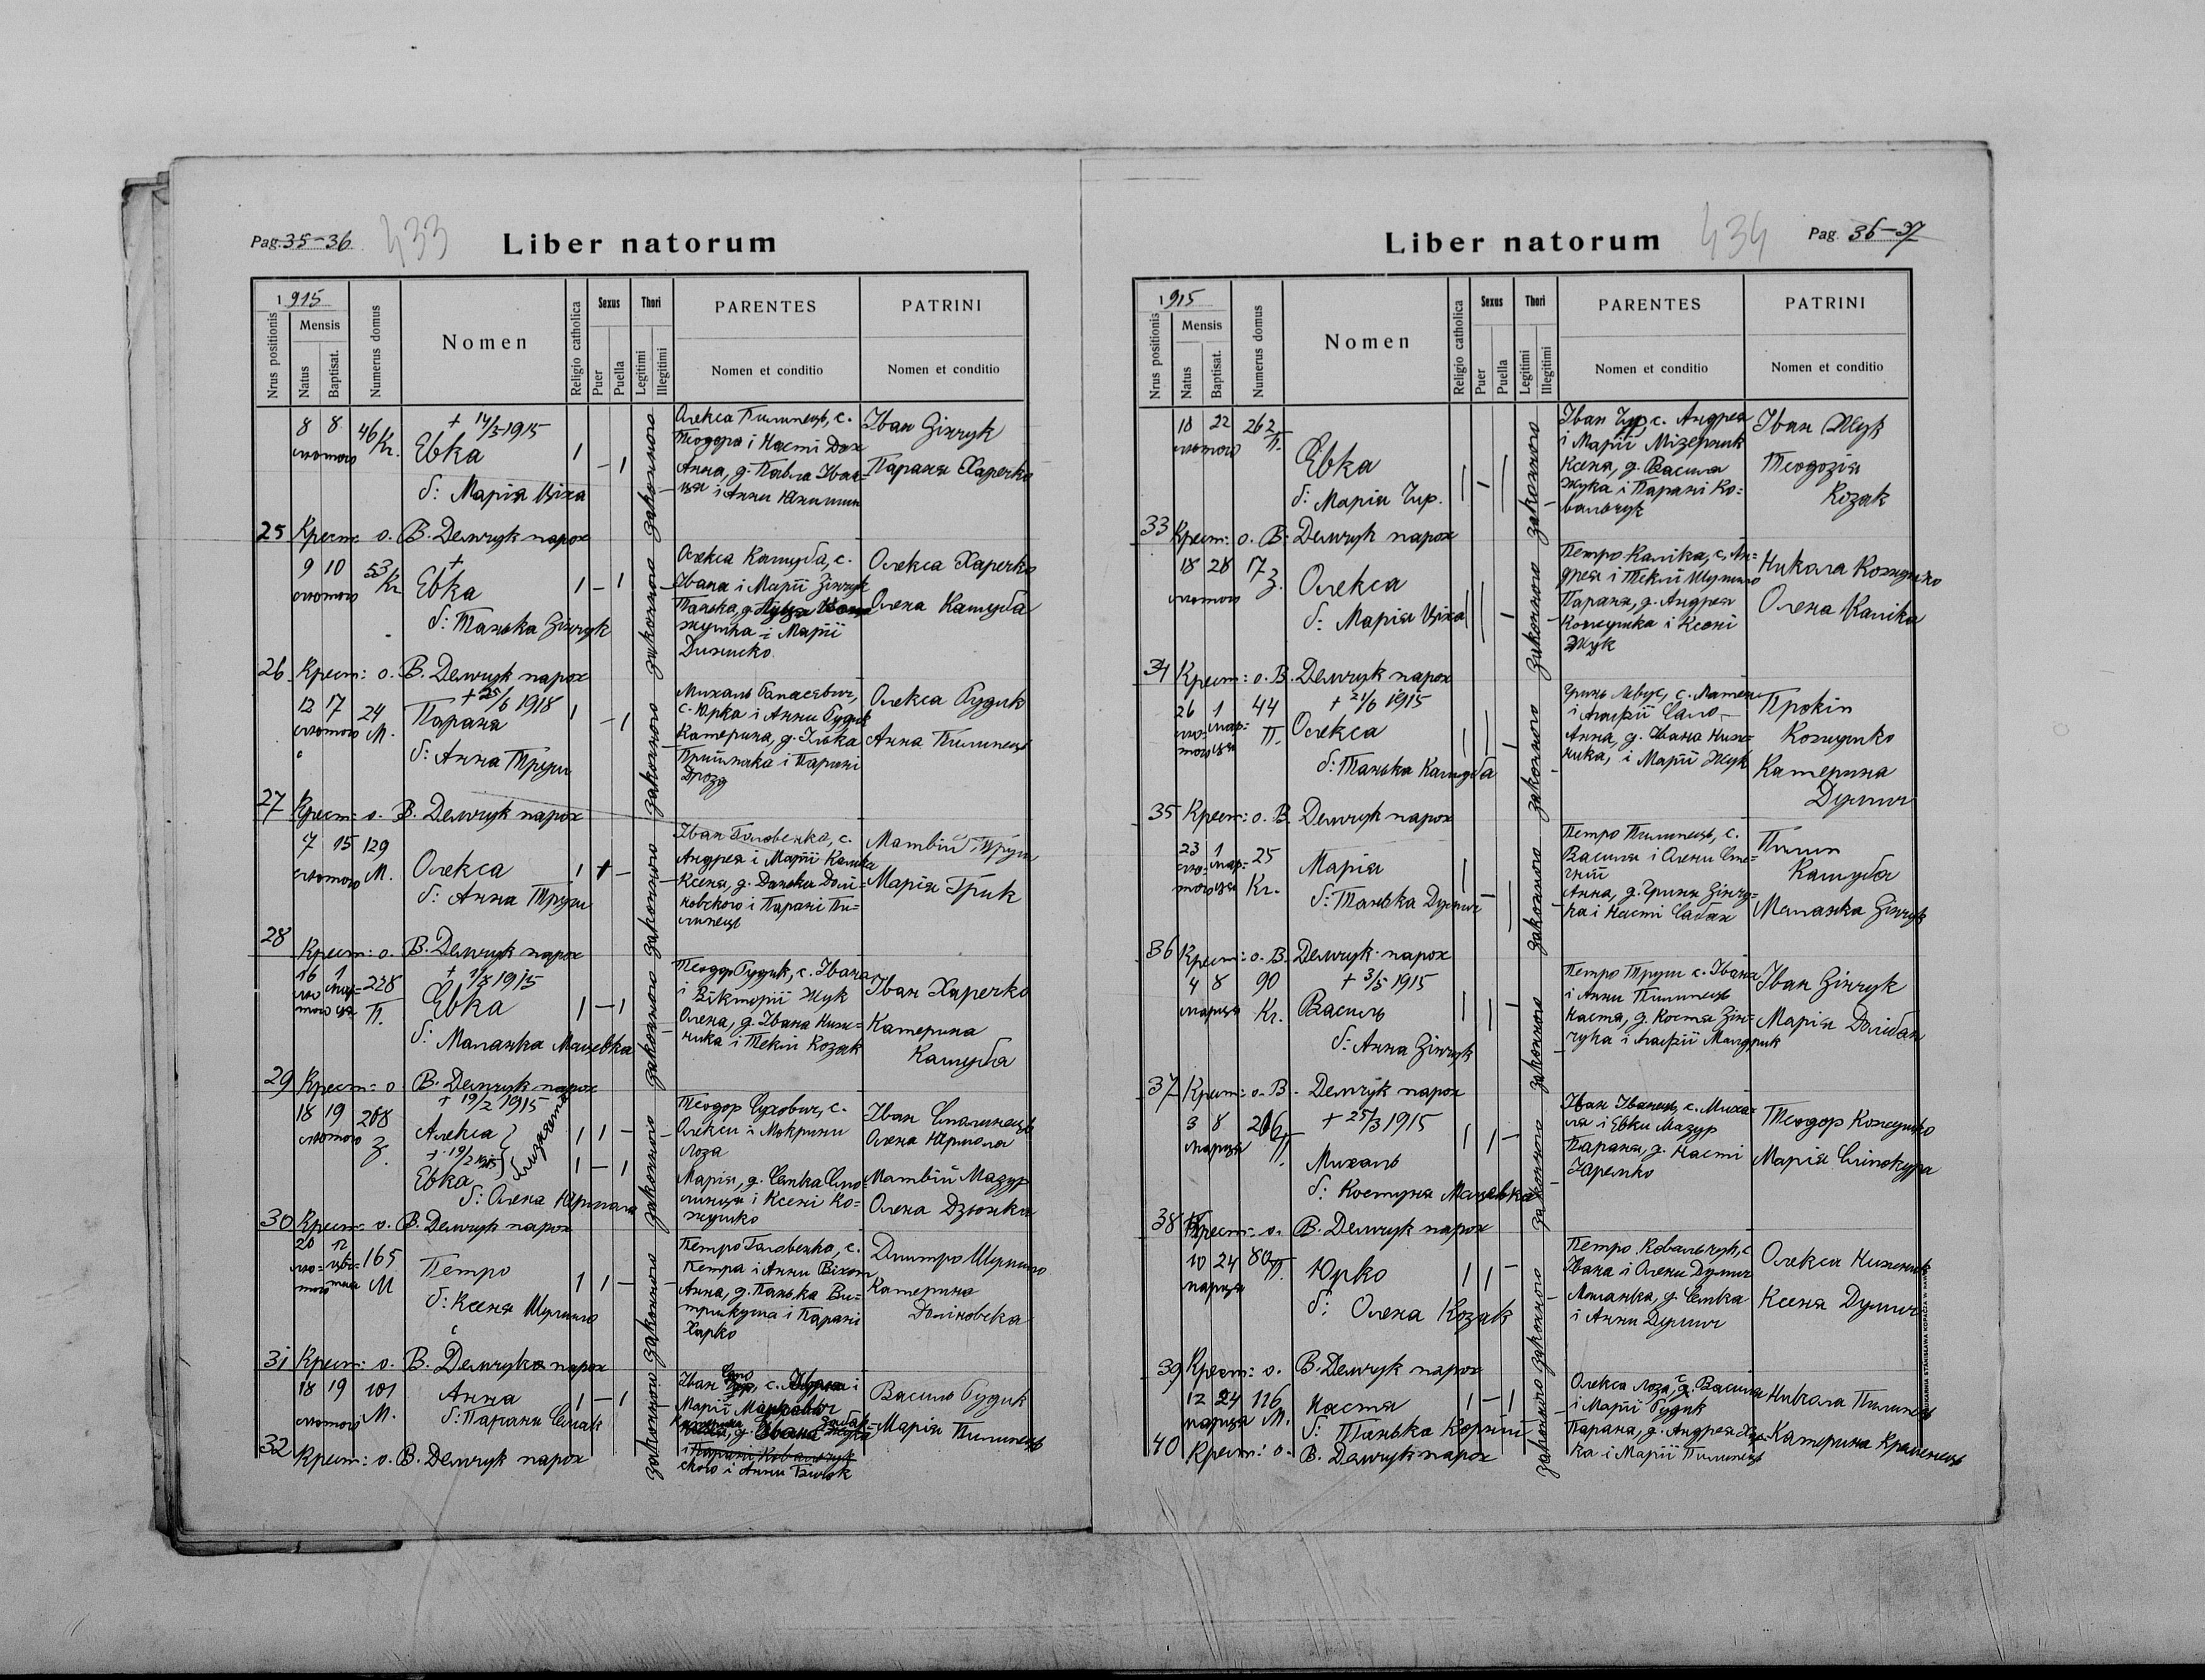 Pag. 35-36
433
Liber natorum
1915
Nrus positionis
Mensis
Natus
Baptisat.
Numerus domus
Nomen
Religio catholica
Sexus
Puer
Puella
Thori
Legitimi
Illegitimi
PARENTES
Nomen et conditio
PATRINI
Nomen et conditio
8 8 46/Кг.
лютого
+ 14/3 1915
Евка
б: Марія Ціха
1 – 1
законного
Олекса Пилипець, с.
Теодора і Насті
Анна, д. Павла Іван-
ця і Анни
Іван Зінчук
Параня Харечко
25 Крест: о. В. Демчук парох
9 10 53/Кг
лютого
+
Евка
б: Танька Зінчук
1 – 1
законного
Олекса Кашуба, с.
Івана і Марії Зінчук
Панька, д.
і Марії
Олекса Харечко
Олена Кашуба
26 Крест: о. В. Демчук парох
12 17 24
лютого М.
+ 25/6 1918
Параня
б: Анна Труш
1 – 1
законного
Михаль Банасевич,
с. Юрка і Анни Будик
Катерина, д. Ілька
і Парані
Дрозд
Олекса Будик
Анна Пилипець
27 Крест: о. В. Демчук парох
7 15 129
лютого М.
Олекса
б: Анна Труш
1 + –
законного
Іван Головенка, с.
Андрея і Марії Каліка
Ксеня, д. Данька Долі-
новского і Парані Пи-
липець
Матвій Труш
Марія Грик
28 Крест: о. В. Демчук парох
16 1 228
лю- мар-
того ця П.
+ 1/8 1915
Евка
б: Маланка Мацевка
1 – 1
законного
Теодор Будик, с. Івана
і Вікторії Жук
Олена, д. Івана Ниж-
ника і Теклі Козак
Іван Харечко
Катерина
Кашуба
29 Крест: о. В. Демчук парох
18 19 208
лютого З.
+ 19/2 1915
Алекса
+ 19/2 1915
Евка
близнята
б: Олена Юрмола
1 1 –
1 – 1
законного
Теодор Сухович, с.
Олекси і Мокрини
Лоза
Марія, д. Семка Спо-
линця і Ксені Ко-
жушко
Іван Сполинець
Олена Юрмола
Матвій Мазур
Олена Дзюнка
30 Крест: о. В. Демчук парох
20 12 165
лю- цві-
того тня М
Петро
б: Ксеня Шумило
1 1 –
законного
Петро Головенка, с.
Петра і Анни
Анна, д. Панька Ви-
трикуша і Парані
Харко
Дмитро Шумило
Катерина
Доліновска
31 Крест: о. В. Демчук парох
18 19 101
лютого М.
Анна
б: Параня Сплак
1 – 1
законного
Іван
Марії Маркович
ского і Анни Билок
Василь Будик
Марія Пилипець
32 Крест: о. В. Демчук парох
434
Liber natorum
Pag. 36-37
1915
Nrus positionis
Mensis
Natus
Baptisat.
Numerus domus
Nomen
Religio catholica
Sexus
Puer
Puella
Thori
Legitimi
Illegitimi
PARENTES
Nomen et conditio
PATRINI
Nomen et conditio
18 22 262
лютого П.
Евка
б: Марія Чир.
законного
Іван Чур, с. Андрея
і Марії Мізерник
Ксеня, д. Василя
Жука і Парані Ко-
вальчук
Іван Жук
Теодозія
Козак
33 Крест: о. В. Демчук парох
18 28 17
лютого З.
Олекса
б: Марія Ціха
законного
Петро Каліка, с. Ан-
дрея і Теклі Шумило
Параня, д. Андрея
Кожушка і Ксені
Жук
Никола Кожушко
Олена Каліка
34 Крест: о. В. Демчук парох
26 1 44
лю- мар-
того ця П.
+ 21/6 1915
Олекса
б: Танька Кашуба
законного
Гринь Левус, с.
Анна, д. Івана Ниж-
ника, і Марії Жук
Прокіп
Кожушко
Катерина
Думич
35 Крест: о. В. Демчук парох
23 1 25
лю- мар-
того ця Кг.
Марія
б: Танька Думич
законного
Петро Пилипець, с.
Василя і Олени
Анна, д. Гриня Зінчу-
ка і Насті Сабан
Пилип
Кашуба
Маланка Зінчук
36 Крест: о. В. Демчук парох
4 8 90
марця Кг.
+ 3/5 1915
Василь
б: Анна Зінчук
законного
Петро Труш с. Івана
і Анни Пилипець
Настя, д. Костя Зін-
чука і Агафії
Іван Зінчук
Марія Долібан
37 Крест: о. В. Демчук парох
3 8 216
марця П.
+ 25/3 1915
Михаль
б: Костуня Мацевка
законного
Іван Іванець, с. Миха-
ля і Евки Мазур
Параня, д. Насті
Яремко
Теодор Кожушко
Марія Слінокура
38 Крест: о. В. Демчук парох
10 24 80
марця П.
Юрко
б: Олена Козак
1 1 –
законного
Петро Ковальчук, с.
Івана і Олени Думич
Маланка, д. Семка
і Анни Думич
Олекса Нижник
Ксеня Думич
39 Крест: о. В. Демчук парох
12 24 116
марця М.
Настя
б: Танька Корній
1 – 1
законного
Олекса Лоза, с. Василя
і Марії Будик
Параня, д. Андрея
ка і Марії Пилипець
Никола Пилипець
Катерина Краменець
40 Крест: о. В. Демчук парох